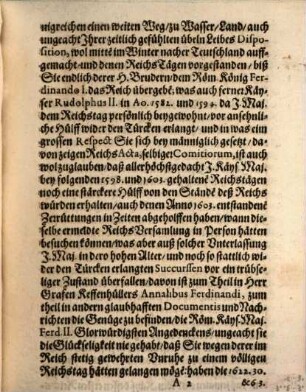 nigreichen einen weiten Weg/ zu Wasser/ Land/ auch
ungeacht Ihrer zeitlich gefühlten übeln Leibes Dispo-
sition, wol mitte im Winter nacher Teutschland auff-
gemacht/ und denen Reichs Tägen vorgestanden/ biß
Sie endlich derer H. Brudern/ dem Röm. König Fer-
dinando I. das Reich übergebē; was auch ferner Käy-
ser Rudolphus II. in Ao. 1582. und 1594. da J. Maj.
dem Reichstag persönlich beygewohnt/ vor ansehnli-
che Hülff wider den Türcken erlangt/ und in was ein
grossen Respect Sie sich bey männiglich gesetzt/ da-
von zeigen Reichs Acta, selbiger Comitiorum, ist auch
wol zuglauben/ daß allerhöchstgedacht J. Käys. Maj.
bey folgenden 1598. und 1603. gehaltenē Reichstägen
noch eine stärckere Hülff von den Ständē deß Reichs
würden erhalten/ auch denen Anno 1603. entstandenē
Zerrüttungen in Zeiten abgeholffen haben/ wann die-
selbe ermedte Reichs Versamlung in Person hätten
besuchen können/ was aber auß solcher Unterlassung
J. Maj. in dero hohen Alter/ und noch so stattlich wi-
der den Türcken erlangten Succurssen vor ein trübse-
liger Zustand überfallen/ davon ist zum Theil in Herr
Grafen Keffenhüllers Annalibus Ferdinandi, zum
theil in andern glaubhafften Documentis und Nach-
richten die Genüge zu befinden/ die Röm. Käys. Maj.
Ferd II. Glorwürdigsten Angedenckens/ ungeacht sie
die Glückseligkeit nie gehabt/ daß Sie wegen derer im
Reich stetig gewehrten Unruhe zu einem völligen
Reichstag hätten gelangen mögē: haben die 1622. 30.
A 2 &63.